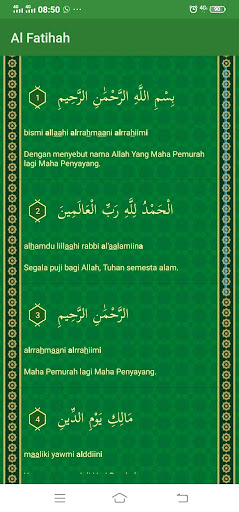 4G 4G 08:50
4G 90
Al Fatihah
1
بِسْمِ اللَّهِ الرَّحْمَٰنِ الرَّحِيمِ
bismi allaahi alrrahmaani alrrahiimi
Dengan menyebut nama Allah Yang Maha Pemurah
lagi Maha Penyayang.
2
الْحَمْدُ لِلَّهِ رَبِّ الْعَالَمِينَ
alhamdu lillaahi rabbi al'aalamiina
Segala puji bagi Allah, Tuhan semesta alam.
3
الرَّحْمَٰنِ الرَّحِيمِ
alrrahmaani alrrahiimi
Maha Pemurah lagi Maha Penyayang.
4
مَالِكِ يَوْمِ الدِّينِ
maaliki yawmi alddiini